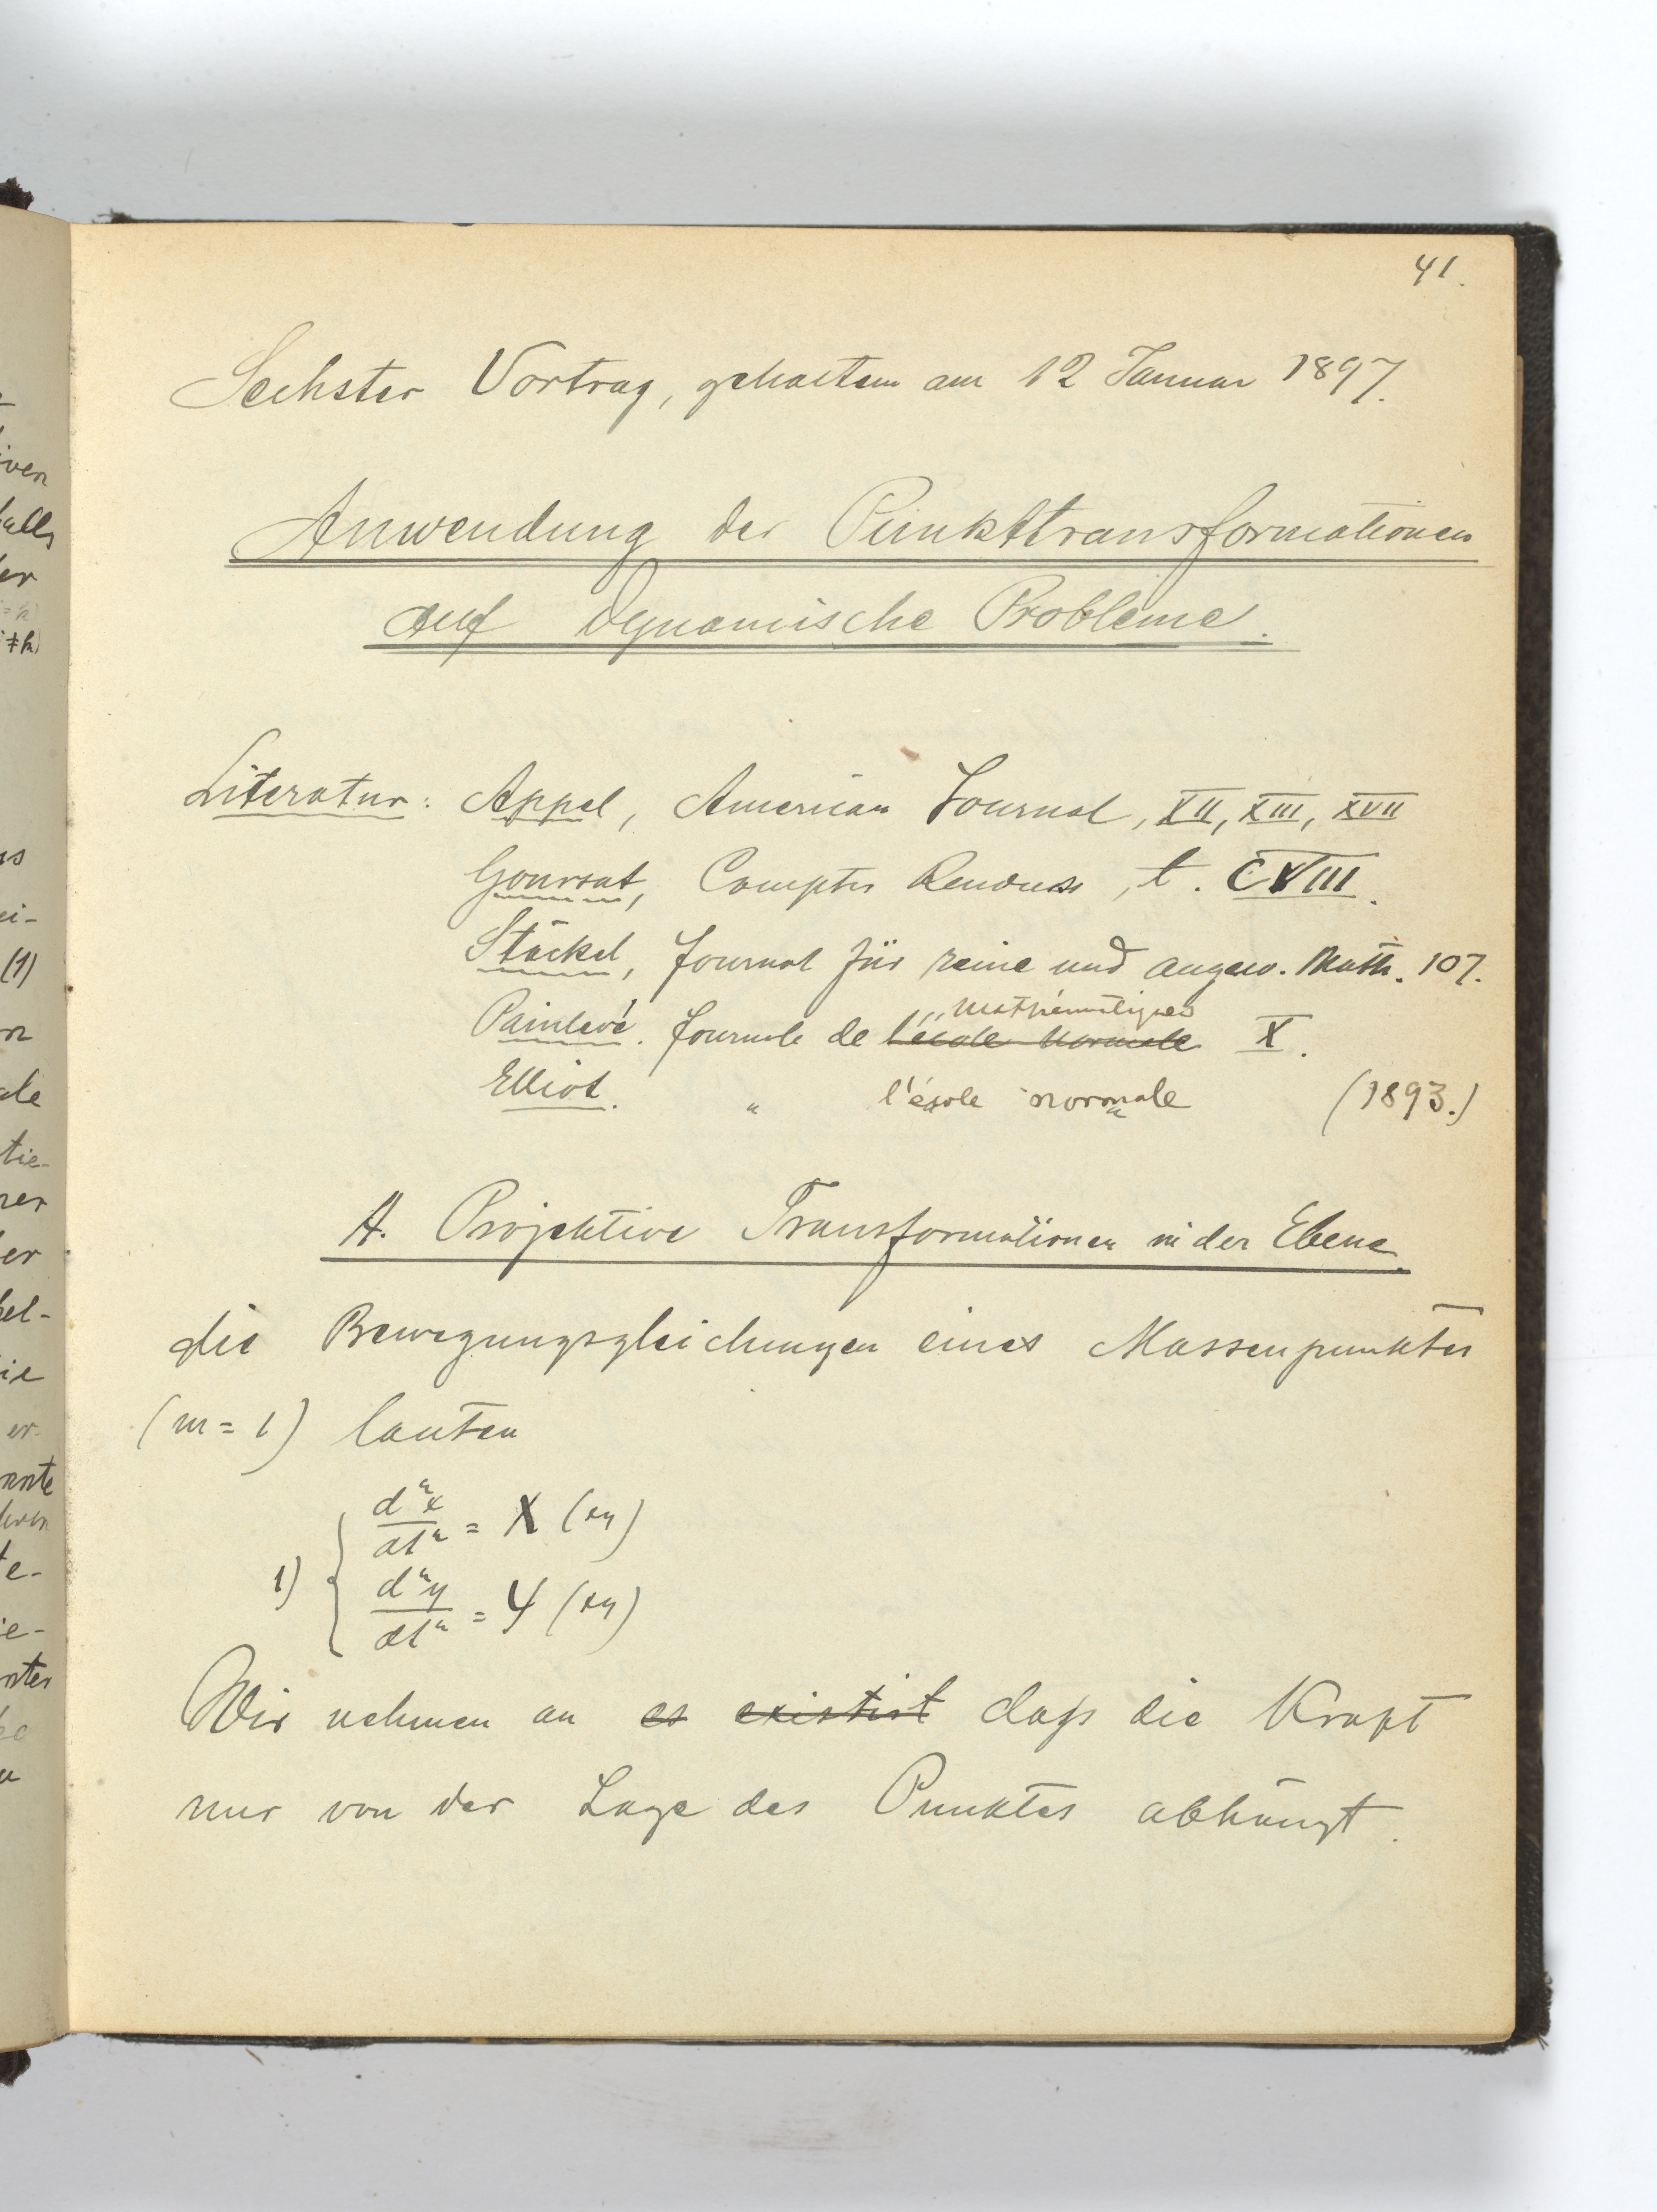 41.
Sechster Vortrag, gehalten am 12 Januar 1897.
Anwendung der Punkttransformationen
auf dynamische Probleme.
Literatur: Appel, American Journal, XII, XIII, XVII
Goursat, Comptes Rendus, t. CVIII.
Stäckel, Journal für reine und angew. Math. 107.
Mathématiques
Painlevé. Journale de l'école normale X.
Elliot. " l'école normale (1893.)
A. Projektive Transformationen in der Ebene.
die Bewegungsgleichungen eines Massenpunktes
(m = 1) lauten
1) { d²x/dt² = X (xy)
d²y/dt² = Y (xy)
Wir nehmen an es existirt daß die Kraft
nur von der Lage des Punktes abhängt.
iven
falls
er
≠ h)
(1)
n
tie-
rer
er
ie
er
nnte
te-
ie-